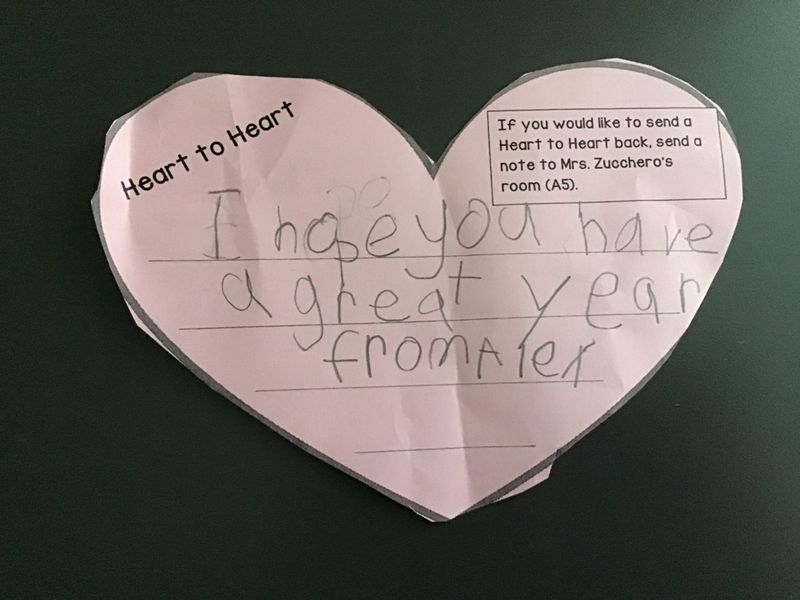 Heart to Heart
If you would like to send a
Heart to Heart back, send a
note to Mrs. Zucchero's
room (A5).
I hope you have
a great year
from Alex